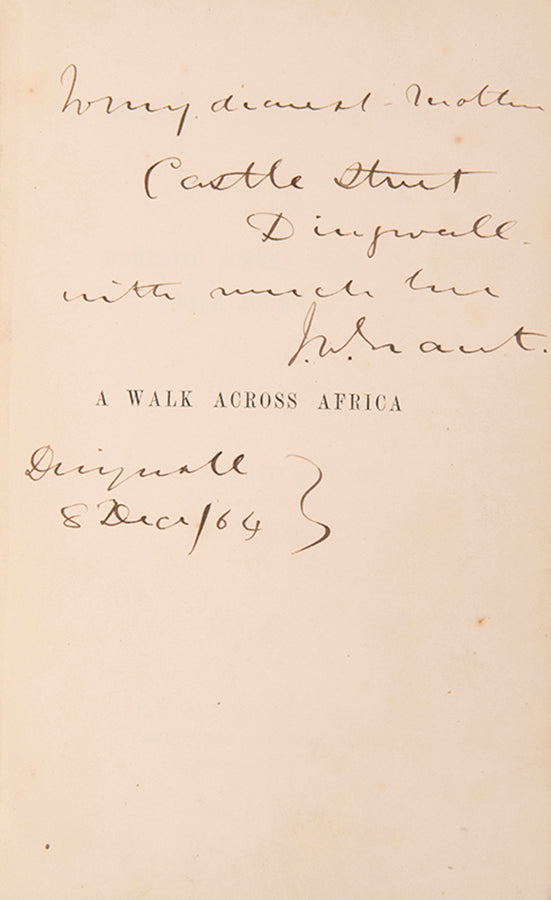 To my dearest Mother
Castle Street
Dingwall.
with much love
J.W. Grant.
A WALK ACROSS AFRICA
Dingwall
8 Decr/64